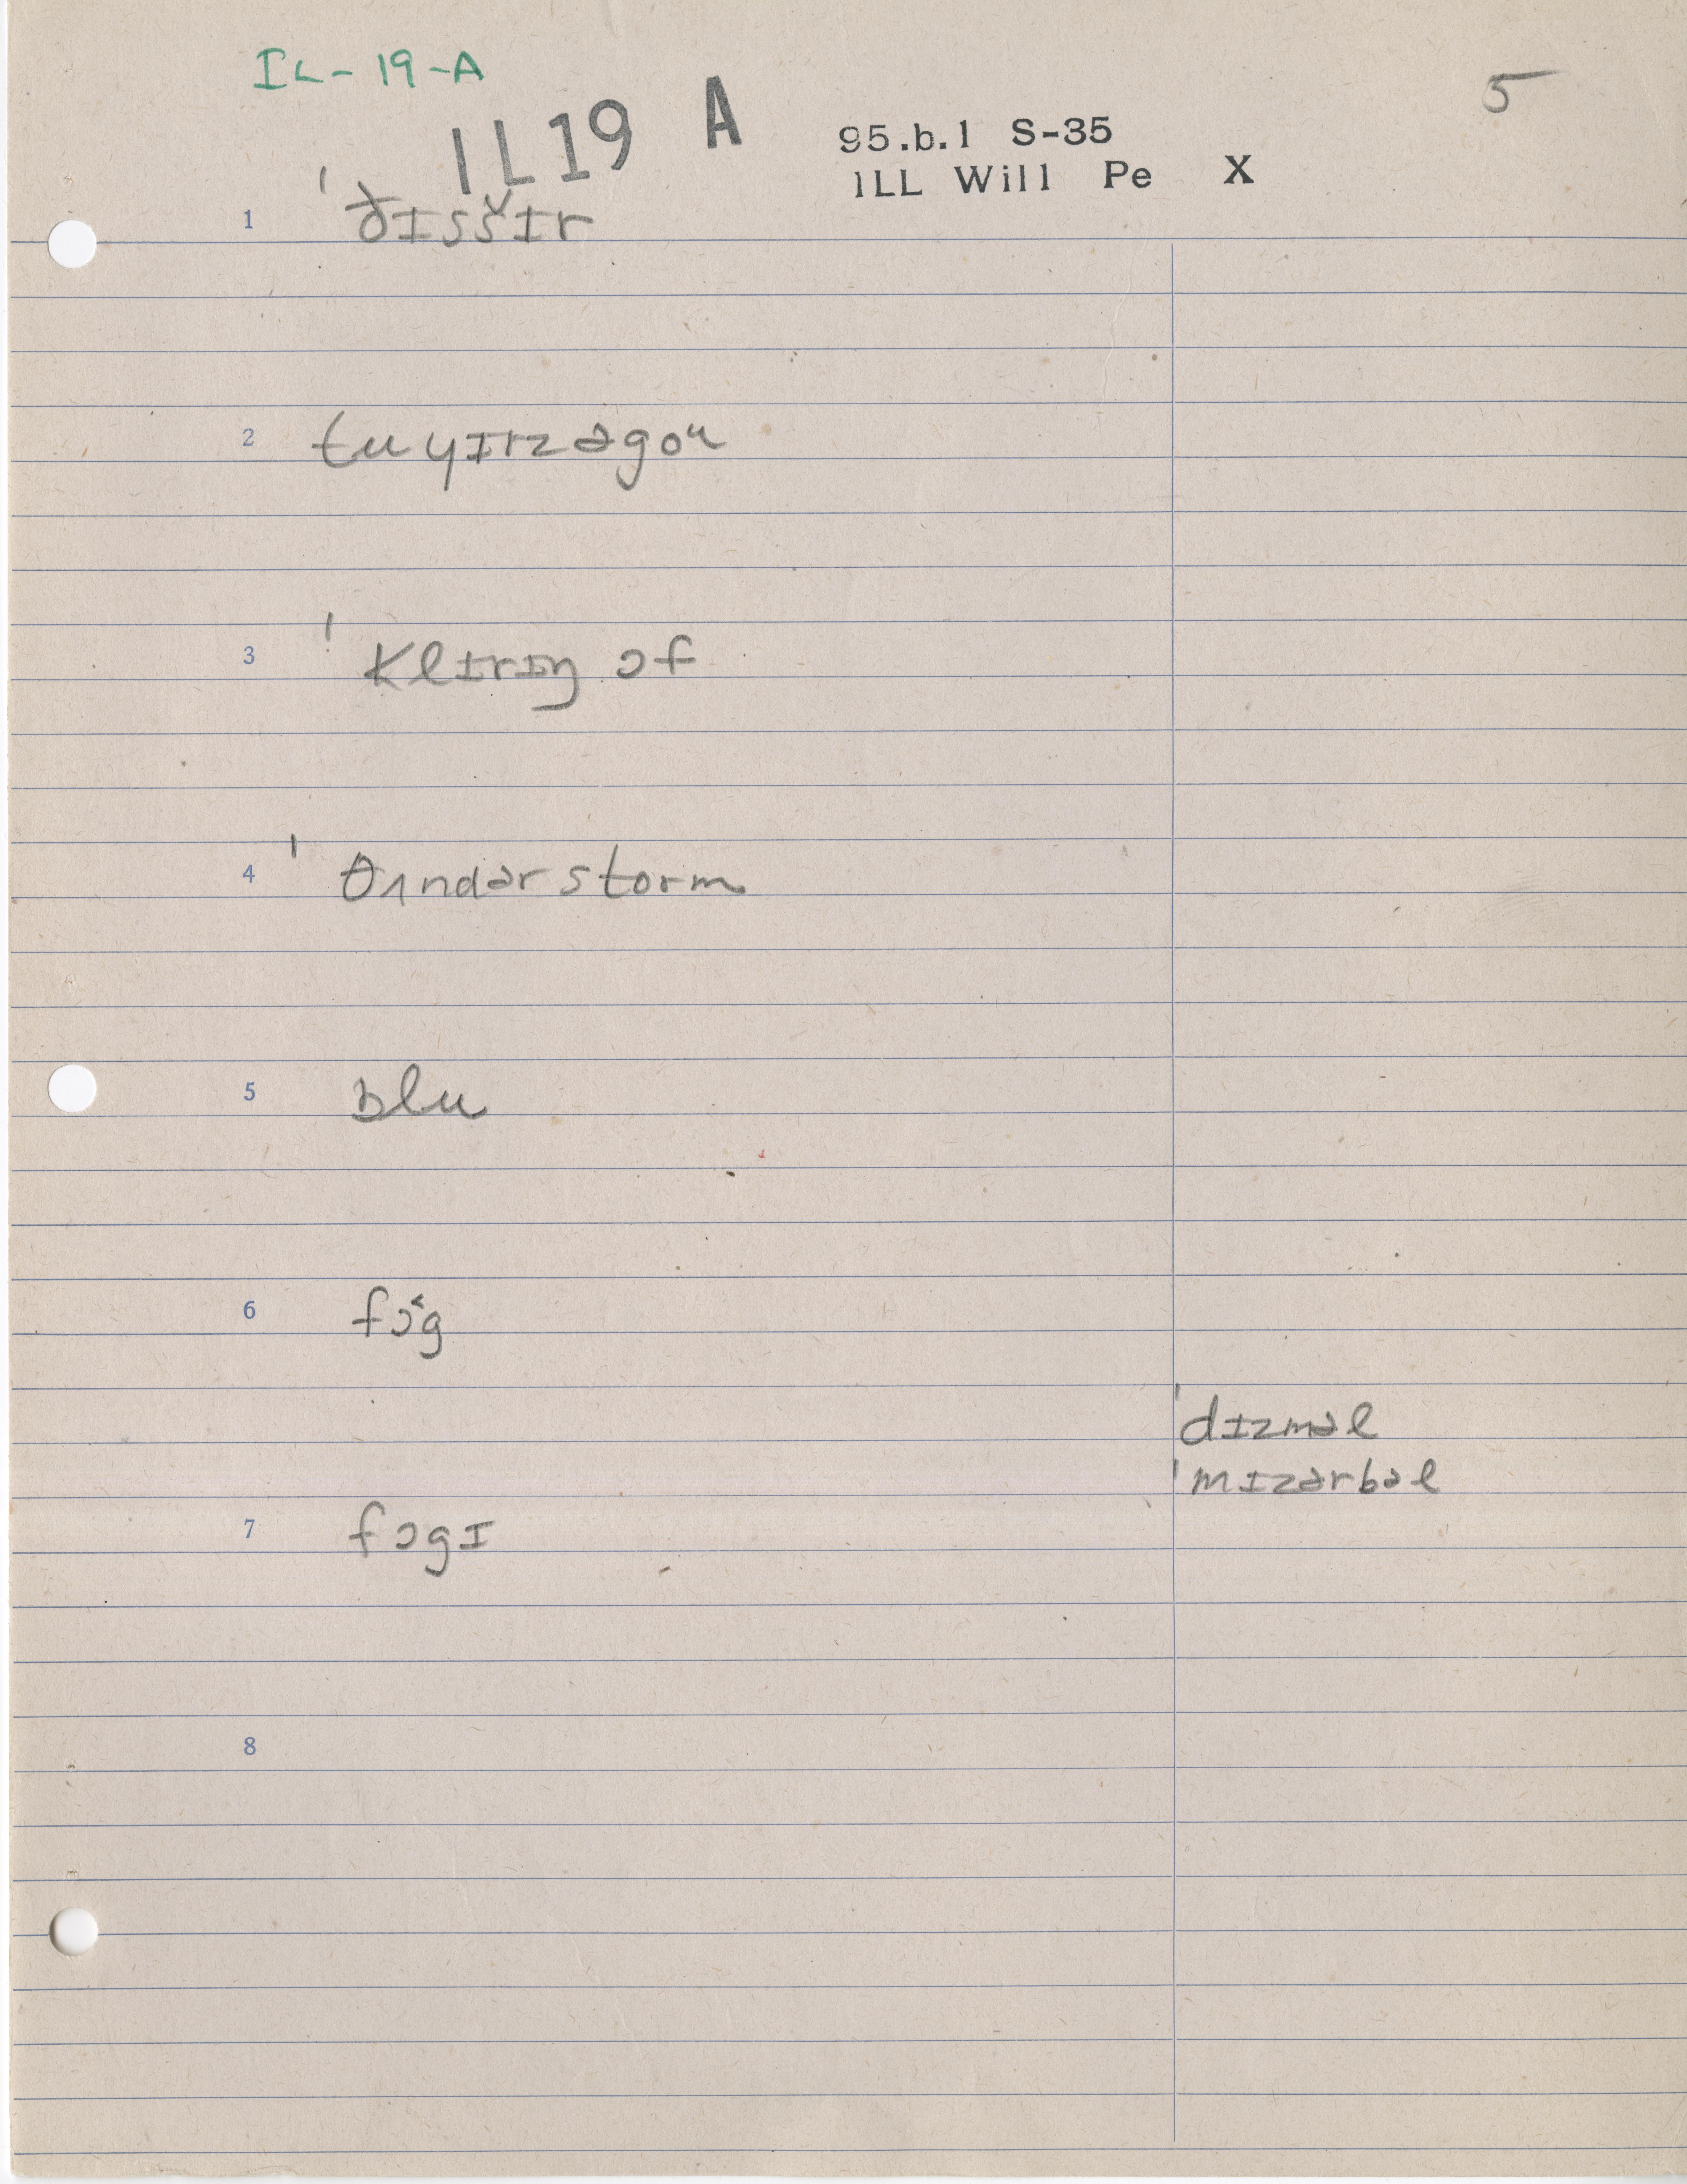 IL-19-A
5
1L19 A
95.b.1 S-35
1LL Will Pe X
1 ˈðɪsšɪr
2 tuyɪrzəgoᵘ
3 ˈklɪrɪŋ ɔf
4 ˈθʌndərstorm
5 blu
6 fɔ˂g
ˈdɪzməl
ˈmɪzərbəl
7 fɔgɪ
8